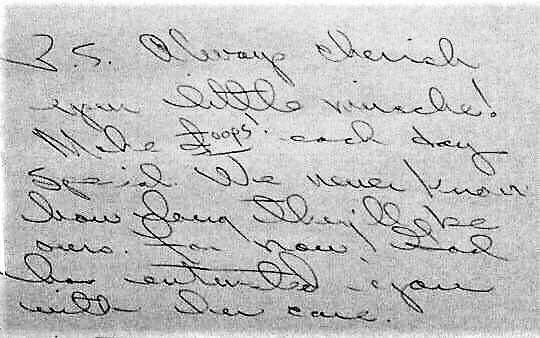 P.S. Always cherish
your little miracle!
Make oops! each day
special. We never know
how long they'll be
ours. For now, God
has entrusted you
with her care.